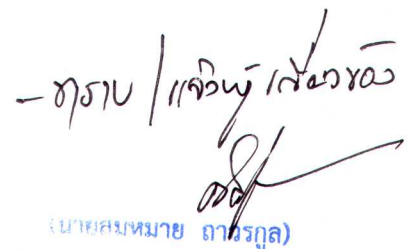 - ทราบ / แจ้งผู้เกี่ยวข้อง
(นายสมหมาย ถาวรกูล)